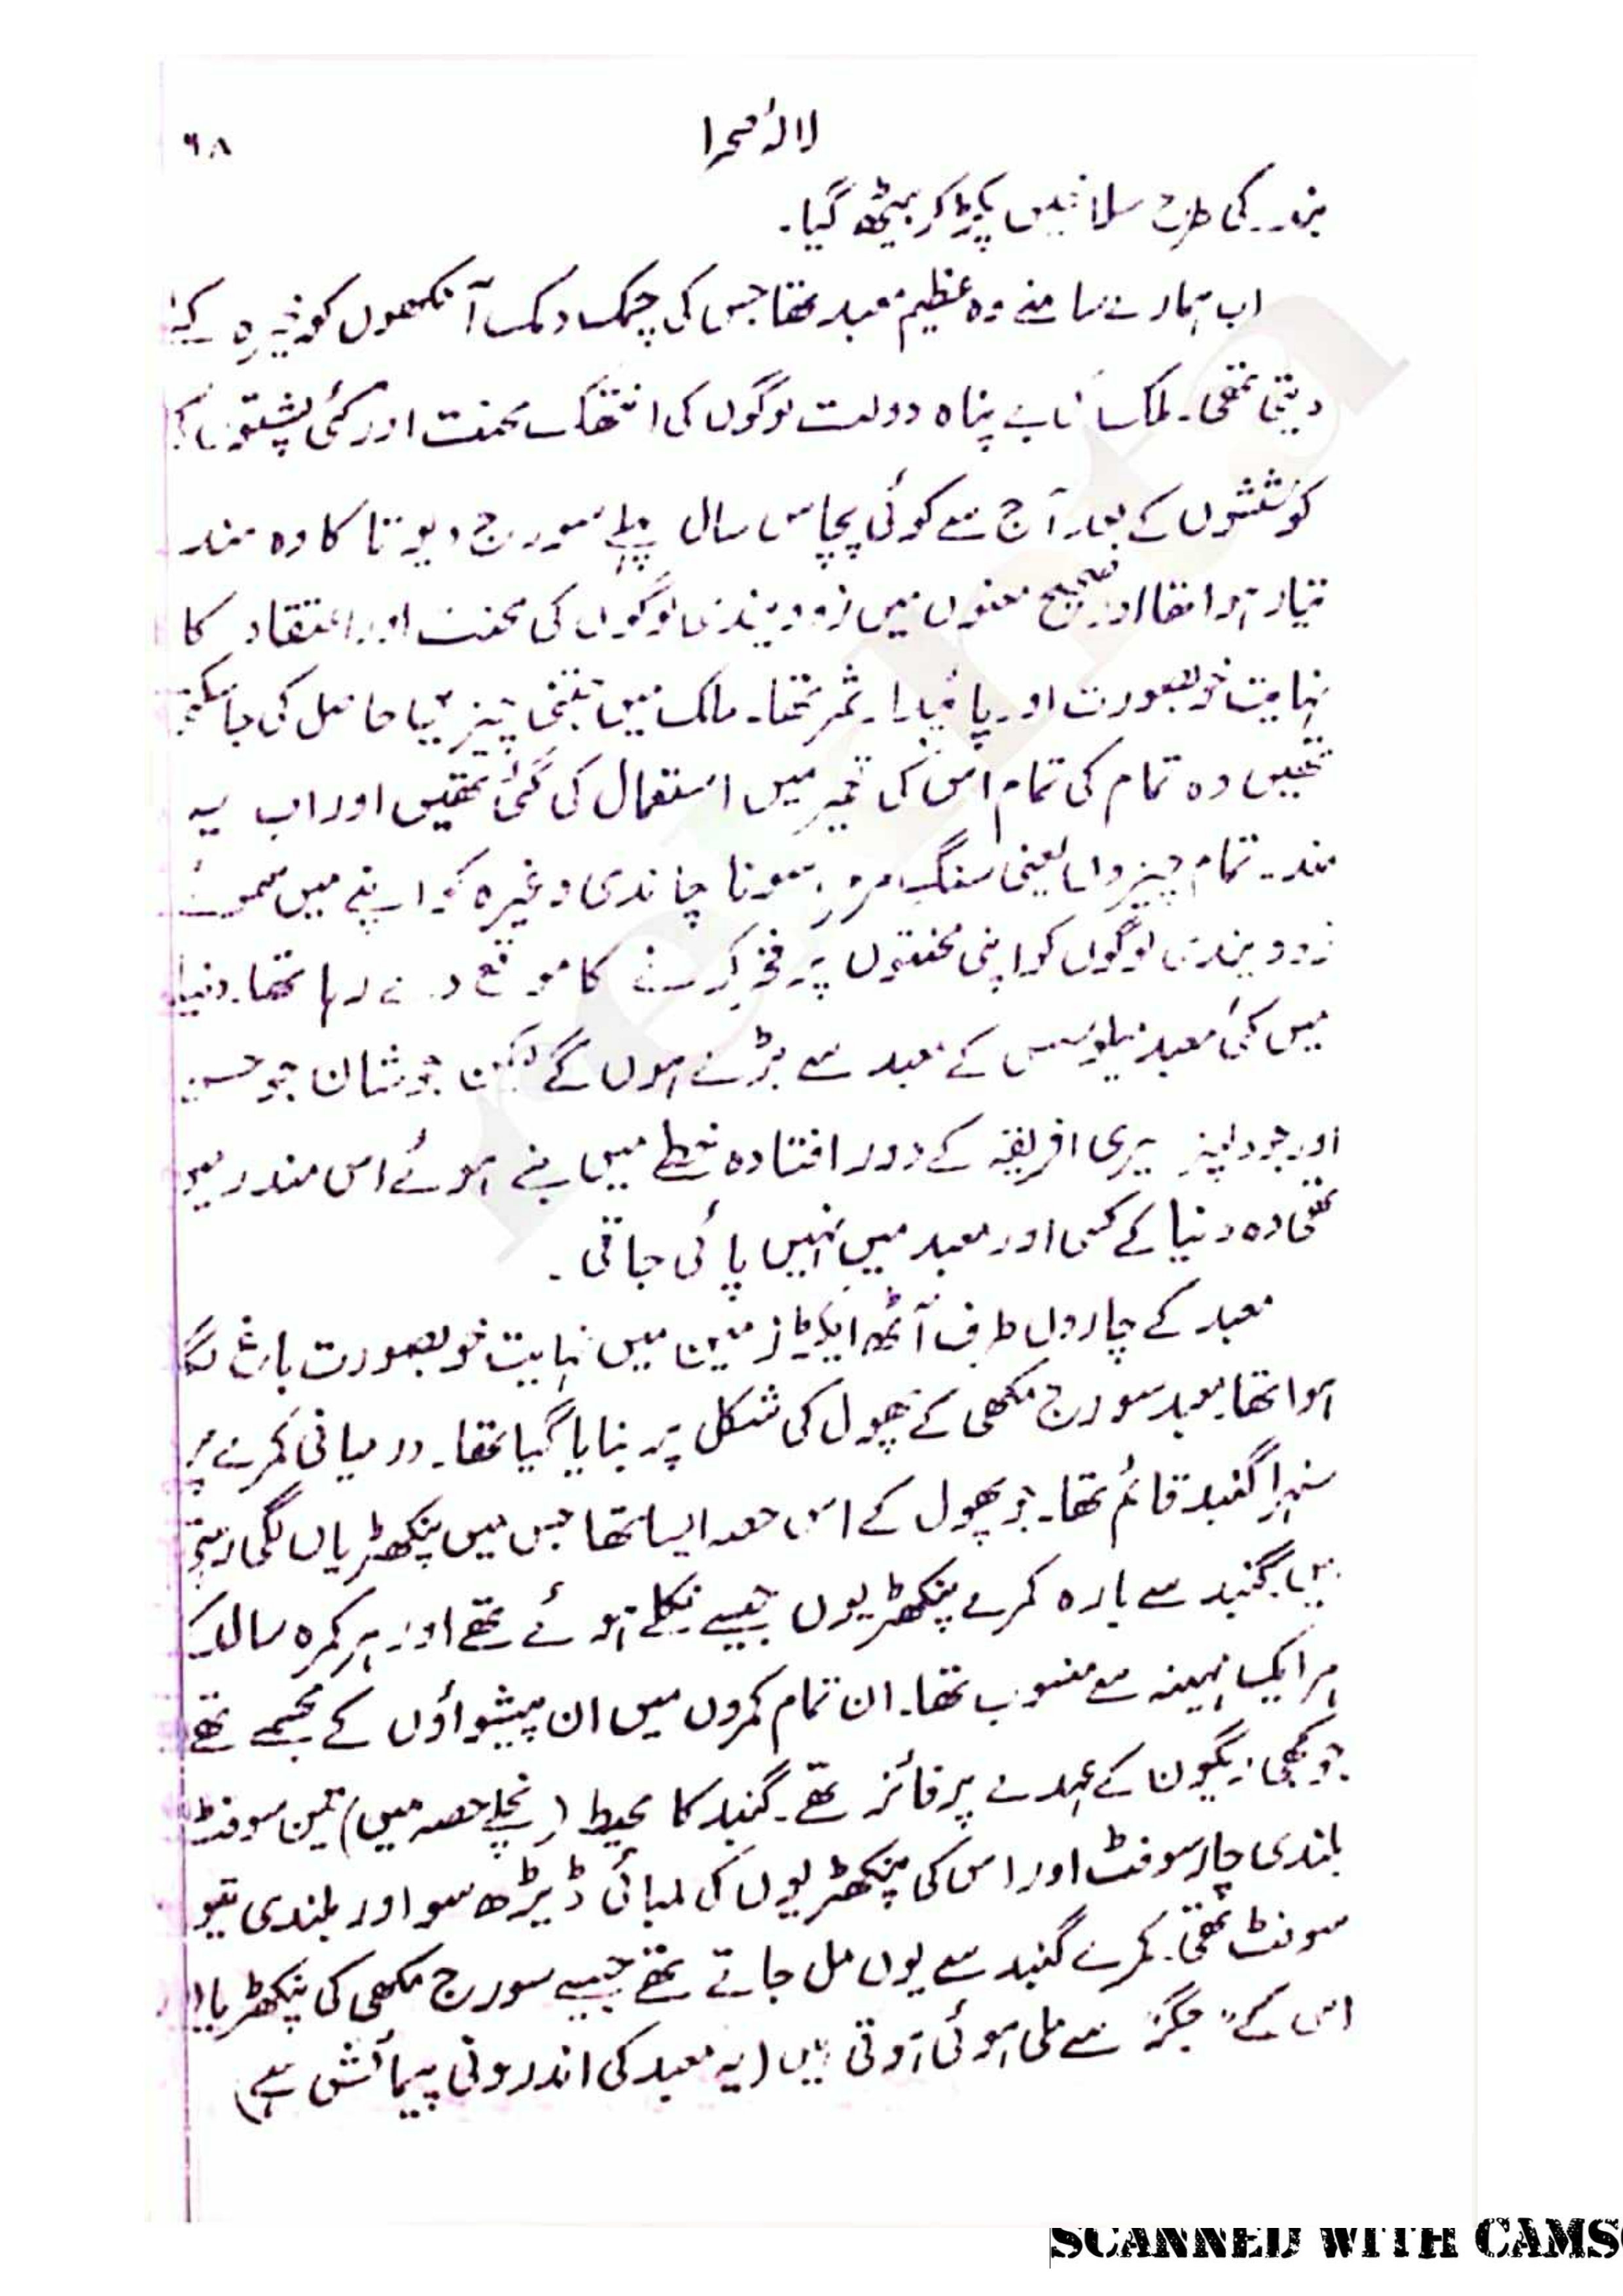 لالۂ صحرا
٦٨
بندر کی طرح سلاخیں پکڑ کر بیٹھ گیا۔
اب ہمارے سامنے وہ عظیم معبد تھا جس کی چمک دمک آنکھوں کو خیرہ کئے
دیتی تھی۔ ملک کی بے پناہ دولت لوگوں کی انتھک محنت اور کئی پشتوں کی
کوششوں کے بعد آج سے کوئی پچاس سال پہلے سورج دیوتا کا وہ مندر
تیار ہوا تھا اور صحیح معنوں میں زوویندی لوگوں کی محنت اور اعتقاد کا
نہایت خوبصورت اور پائیدار ثمر تھا۔ ملک میں جتنی چیزیں حاصل کی جا سکتی
تھیں وہ تمام کی تمام اس کی تعمیر میں استعمال کی گئی تھیں اور اب یہ
مندر تمام چیزوں یعنی سنگ مرمر، سونا چاندی وغیرہ کو اپنے میں سموئے
زوویندی لوگوں کو اپنی محنتوں پر فخر کرنے کا موقع دے رہا تھا۔ دنیا
میں کئی معبد میلوسس کے معبد سے بڑے ہوں گے لیکن جو شان جو حسن
اور جو دلپذیری افریقہ کے دور افتادہ خطے میں بنے ہوئے اس مندر میں
تھی وہ دنیا کے کسی اور معبد میں نہیں پائی جاتی۔
معبد کے چاروں طرف آٹھ ایکڑ زمین میں نہایت خوبصورت باغ لگا
ہوا تھا۔ معبد سورج مکھی کے پھول کی شکل پر بنایا گیا تھا۔ درمیانی کمرے پر
سنہرا گنبد قائم تھا۔ جو پھول کے اس حصہ ایسا تھا جس میں پنکھڑیاں لگی رہتی
ہیں۔ گنبد سے بارہ کمرے پنکھڑیوں جیسے نکلے ہوئے تھے اور ہر کمرہ سال کے
ہر ایک مہینہ سے منسوب تھا۔ ان تمام کمروں میں ان پیشواؤں کے مجسمے تھے
جو کبھی زیگون کے عہدے پر فائز تھے۔ گنبد کا محیط (نچلے حصہ میں) تین سو فٹ
بلندی چار سو فٹ اور اس کی پنکھڑیوں کی لمبائی ڈیڑھ سو اور بلندی تین
سو فٹ تھی۔ کمرے گنبد سے یوں مل جاتے تھے جیسے سورج مکھی کی پنکھڑیاں
اس کے "جگر" سے ملی ہوئی ہوتی ہیں (یہ معبد کی اندرونی پیمائش ہے)
SCANNED WITH CAMS